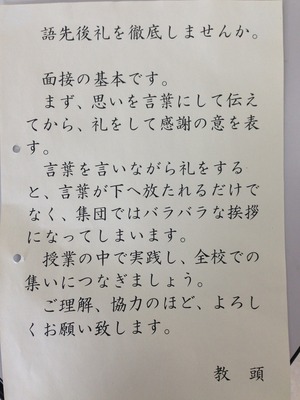 語先後礼を徹底しませんか。
面接の基本です。
まず、思いを言葉にして伝え
てから、礼をして感謝の意を表
す。
言葉を言いながら礼をする
と、言葉が下へ放たれるだけで
なく、集団ではバラバラな挨拶
になってしまいます。
授業の中で実践し、全校での
集いにつなぎましょう。
ご理解、協力のほど、よろし
くお願い致します。
教　頭